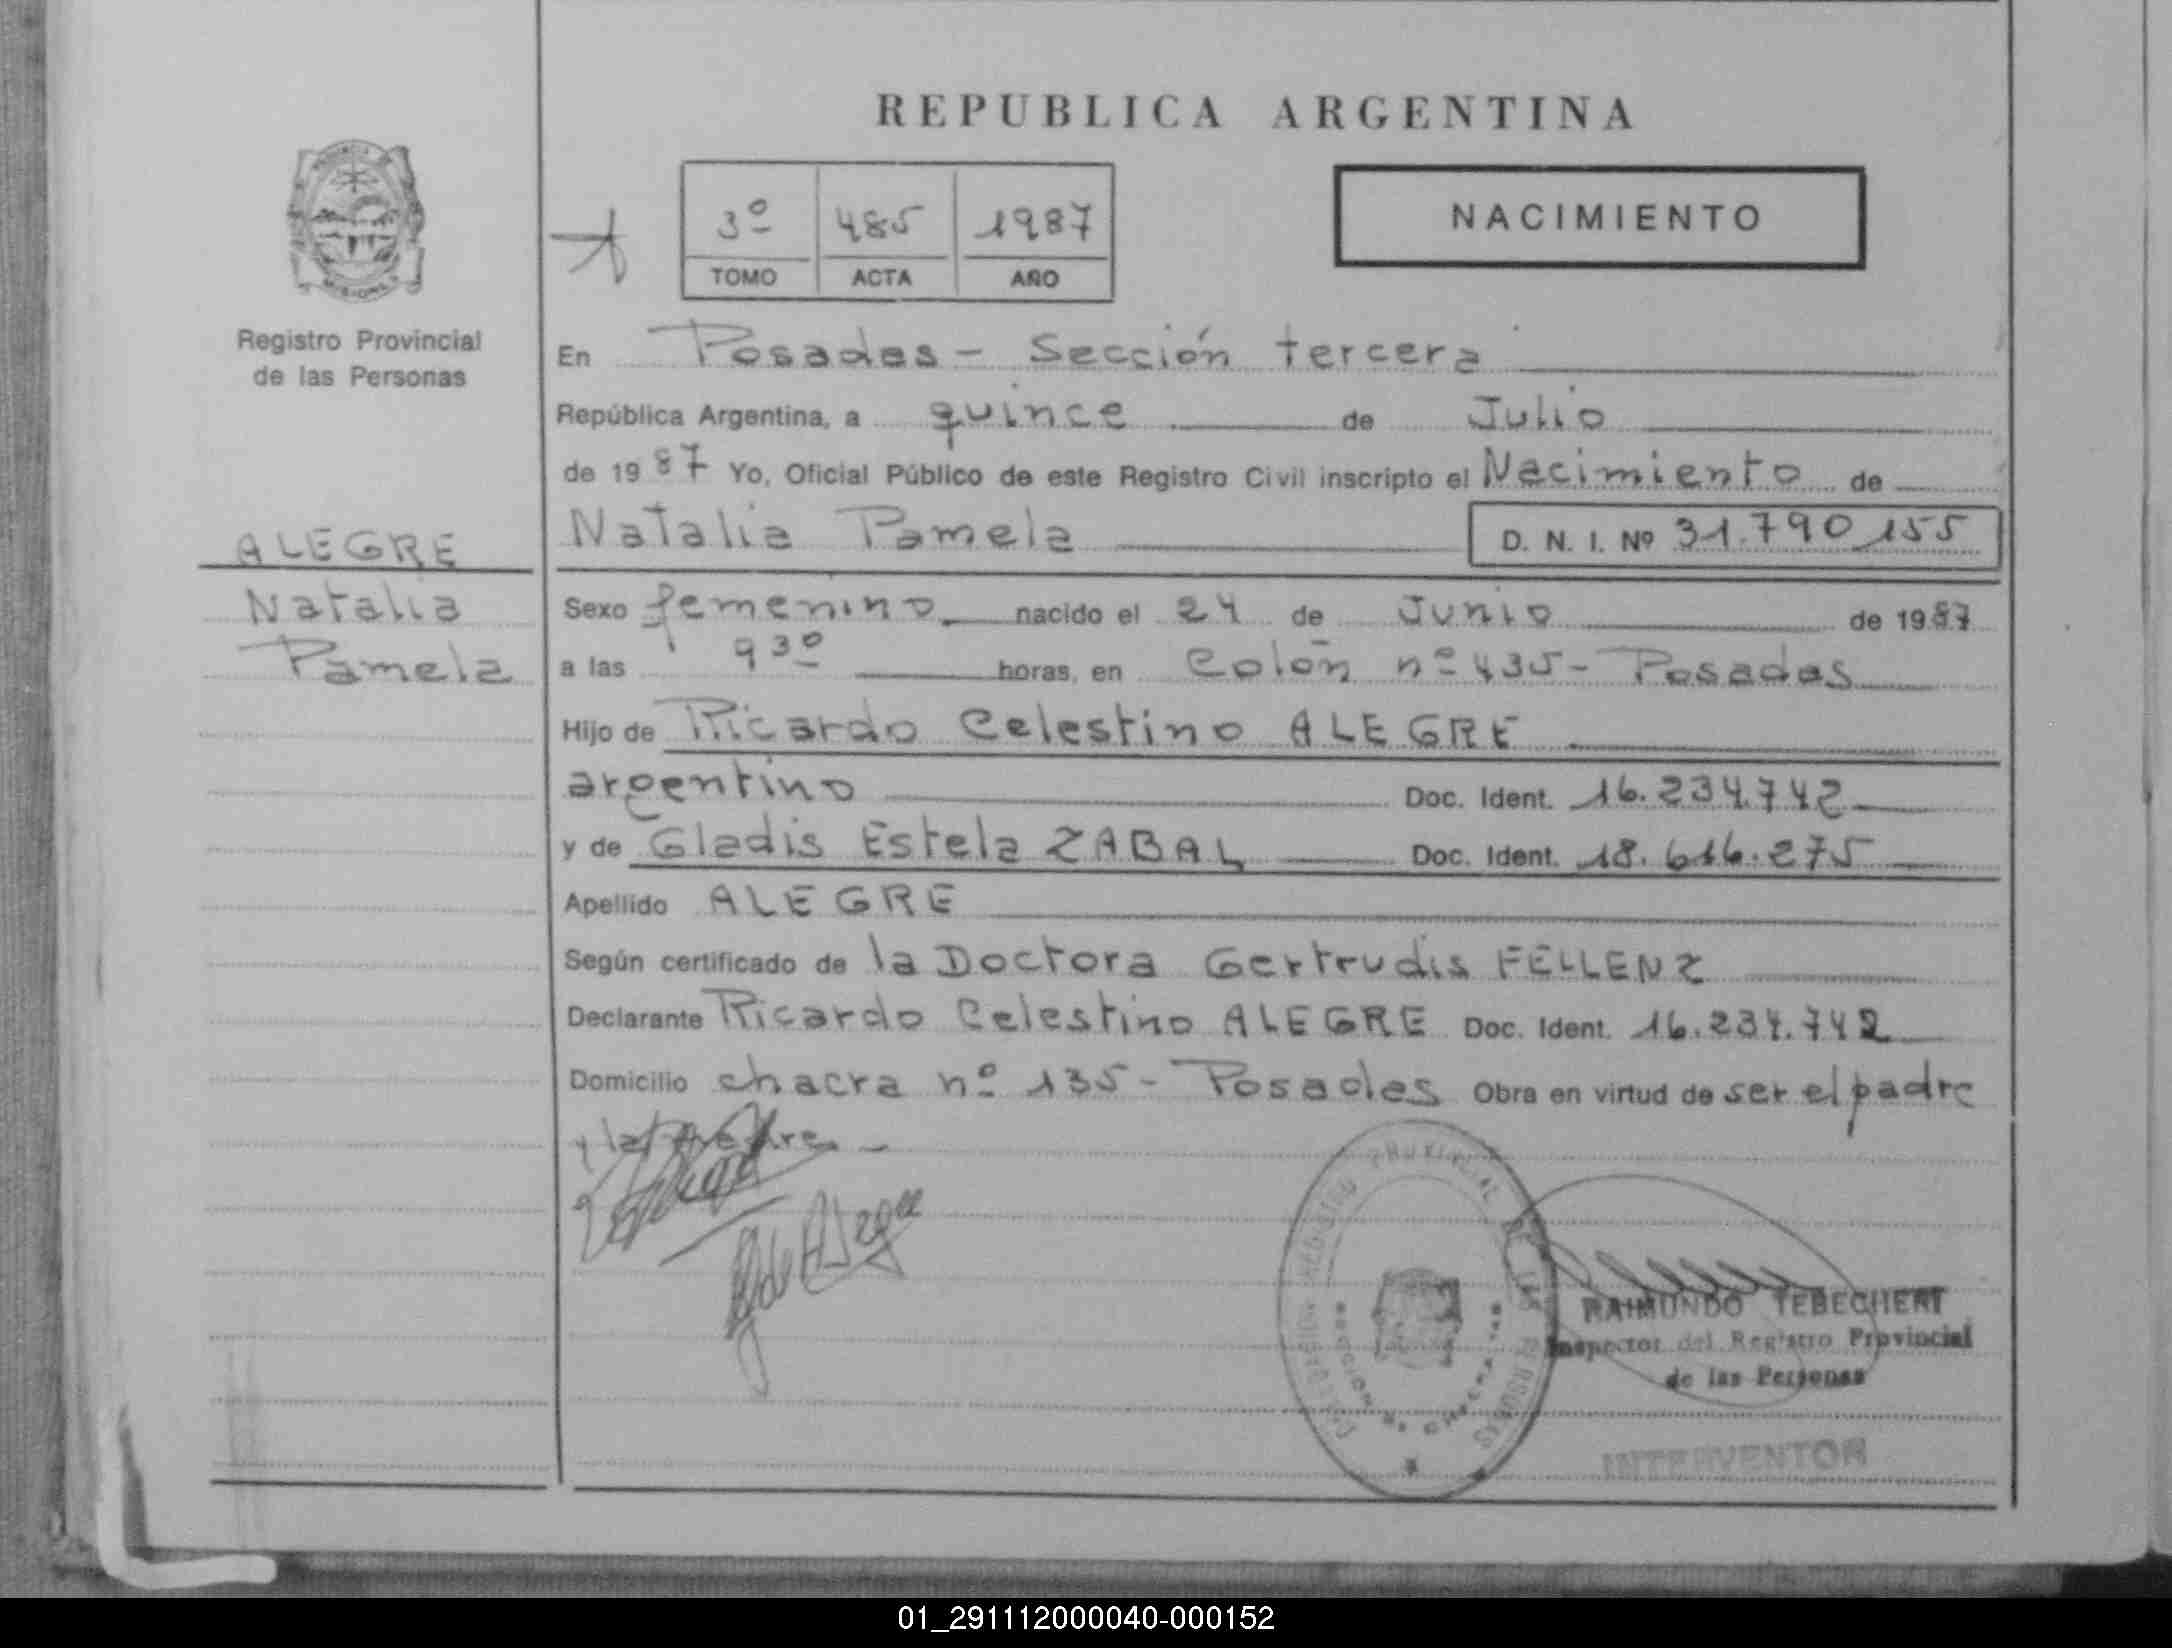 REPUBLICA ARGENTINA
3º 485 1987
TOMO ACTA AÑO
NACIMIENTO
Registro Provincial
de las Personas
ALEGRE
Natalia
Pamela
En Posadas - Sección tercera
República Argentina, a quince de Julio
de 1987 Yo, Oficial Público de este Registro Civil inscripto el Nacimiento de
Natalia Pamela D. N. I. Nº 31.790.155
Sexo femenino nacido el 24 de Junio de 1987
a las 9 30 horas, en Colón nº 435 - Posadas
Hijo de Ricardo Celestino ALEGRE
argentino Doc. Ident. 16.234.742
y de Gladis Estela ZABAL Doc. Ident. 18.616.275
Apellido ALEGRE
Según certificado de la Doctora Gertrudis FELLENZ
Declarante Ricardo Celestino ALEGRE Doc. Ident. 16.234.742
Domicilio chacra nº 135 - Posadas Obra en virtud de ser el padre
y la madre -
PROVINCIAL DE LAS PERSONAS
RAIMUNDO TEBECHERI
Inspector del Registro Provincial
de las Personas
INTERVENTOR
01_291112000040-000152